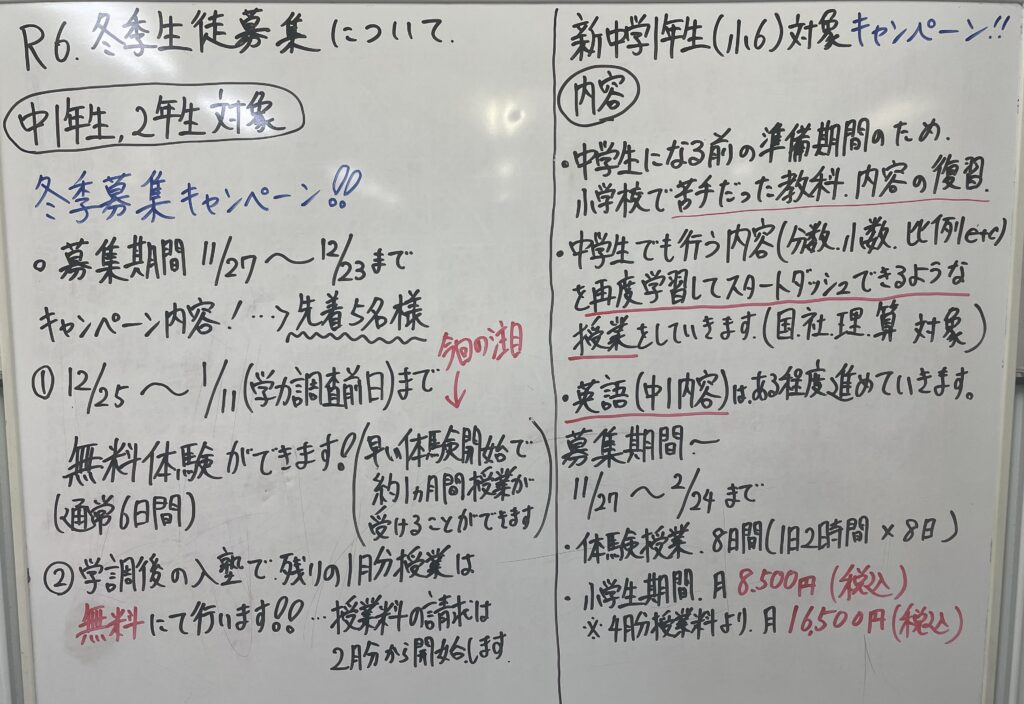 R6.冬季生徒募集について.
中1年生,2年生対象
冬季募集キャンペーン!!
。募集期間 11/27 〜 12/23まで
キャンペーン内容!…→先着5名様
今回の注目
↓
① 12/25 〜 1/11(学力調査前日)まで
無料体験ができます!
(通常6日間)
(早い体験開始で
約1ヵ月間授業が
受けることができます)
② 学調後の入塾で残りの1月分授業は
無料にて行います!!…授業料の請求は
2月分から開始します.
新中学1年生(小6)対象キャンペーン!!
内容
・中学生になる前の準備期間のため.
小学校で苦手だった教科.内容の復習.
・中学生でも行う内容(分数.小数.比例etc)
を再度学習してスタートダッシュできるような
授業をしていきます.(国.社.理.算 対象)
・英語(中1内容)は、ある程度進めていきます。
募集期間〜
11/27 〜 2/24 まで
・体験授業.8日間(1日2時間×8日)
・小学生期間.月 8.500円(税込)
※4月分授業料より.月 16,500円(税込)